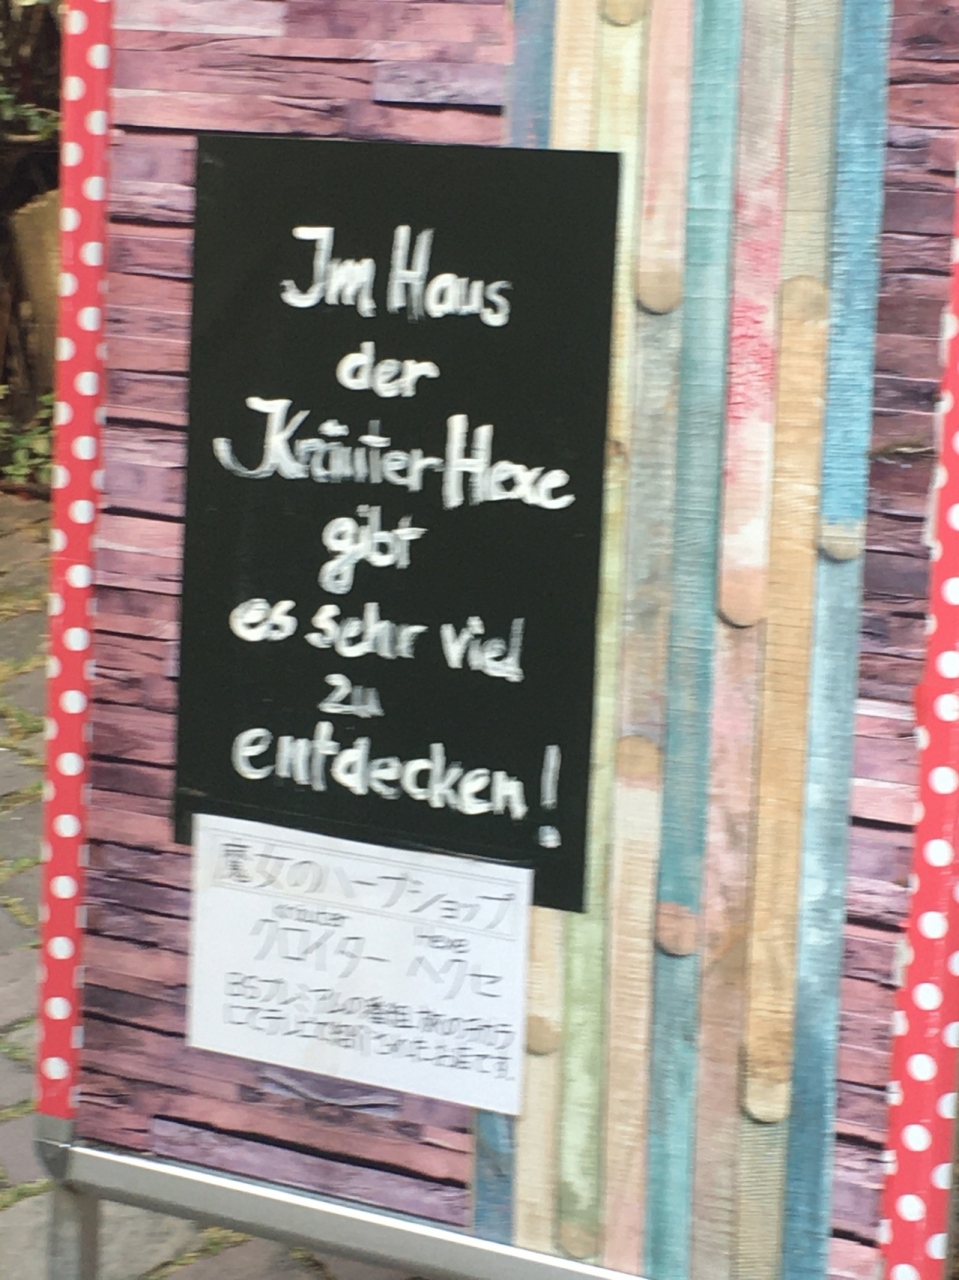 Im Haus
der
Kräuter Hexe
gibt
es sehr viel
zu
entdecken!
魔女のハーブショップ
kräuter Hexe
クロイター ヘクセ
BSプレミアムの番組 旅のチカラ